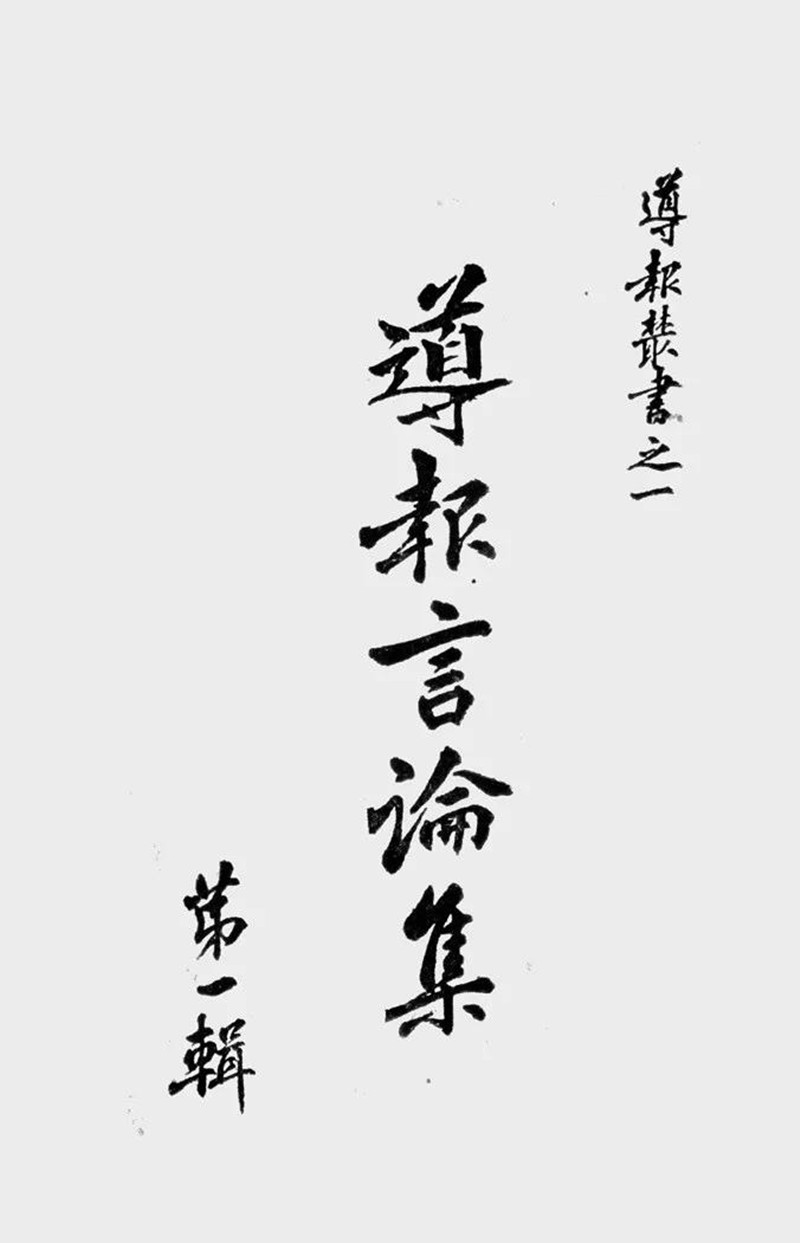 導報叢書之一
導報言論集
第一輯